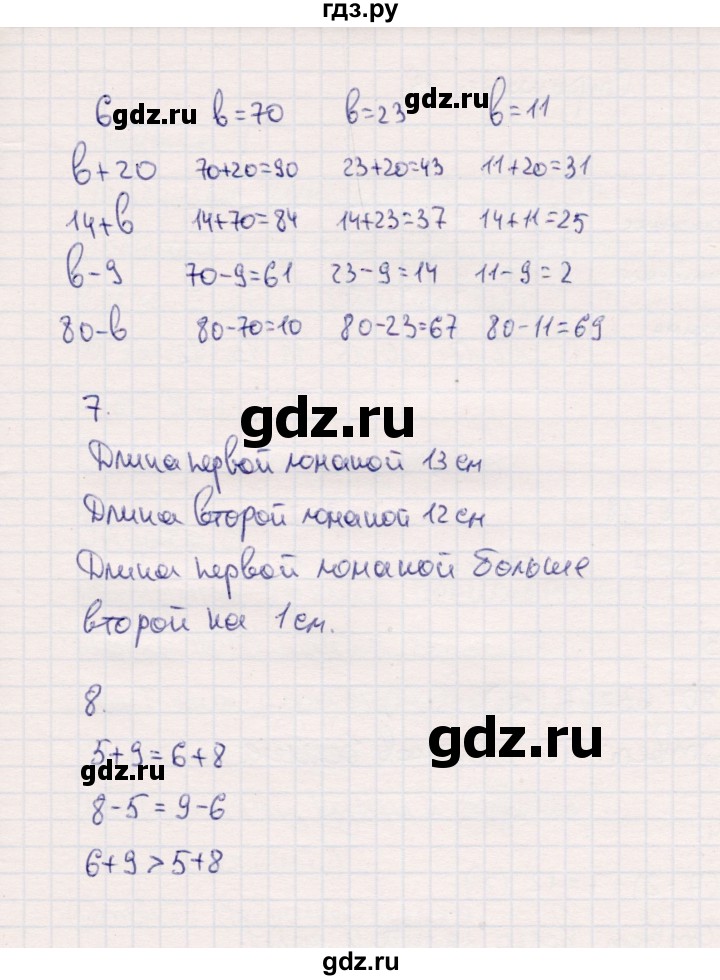 гдз.ру
6 gdz.ru в=70 в=23 gdz.ru в=11
в+20 70+20=90 23+20=43 11+20=31
14+в 14+70=84 14+23=37 14+11=25
в-9 70-9=61 23-9=14 11-9=2
80-в 80-70=10 80-23=67 80-11=69
7.
gdz.ru
Длина первой ломаной 13 см
Длина второй ломаной 12 см
Длина первой ломаной больше
второй на 1 см.
8.
gdz.ru
5+9=6+8
gdz.ru
8-5=9-6
6+9>5+8
gdz.ru